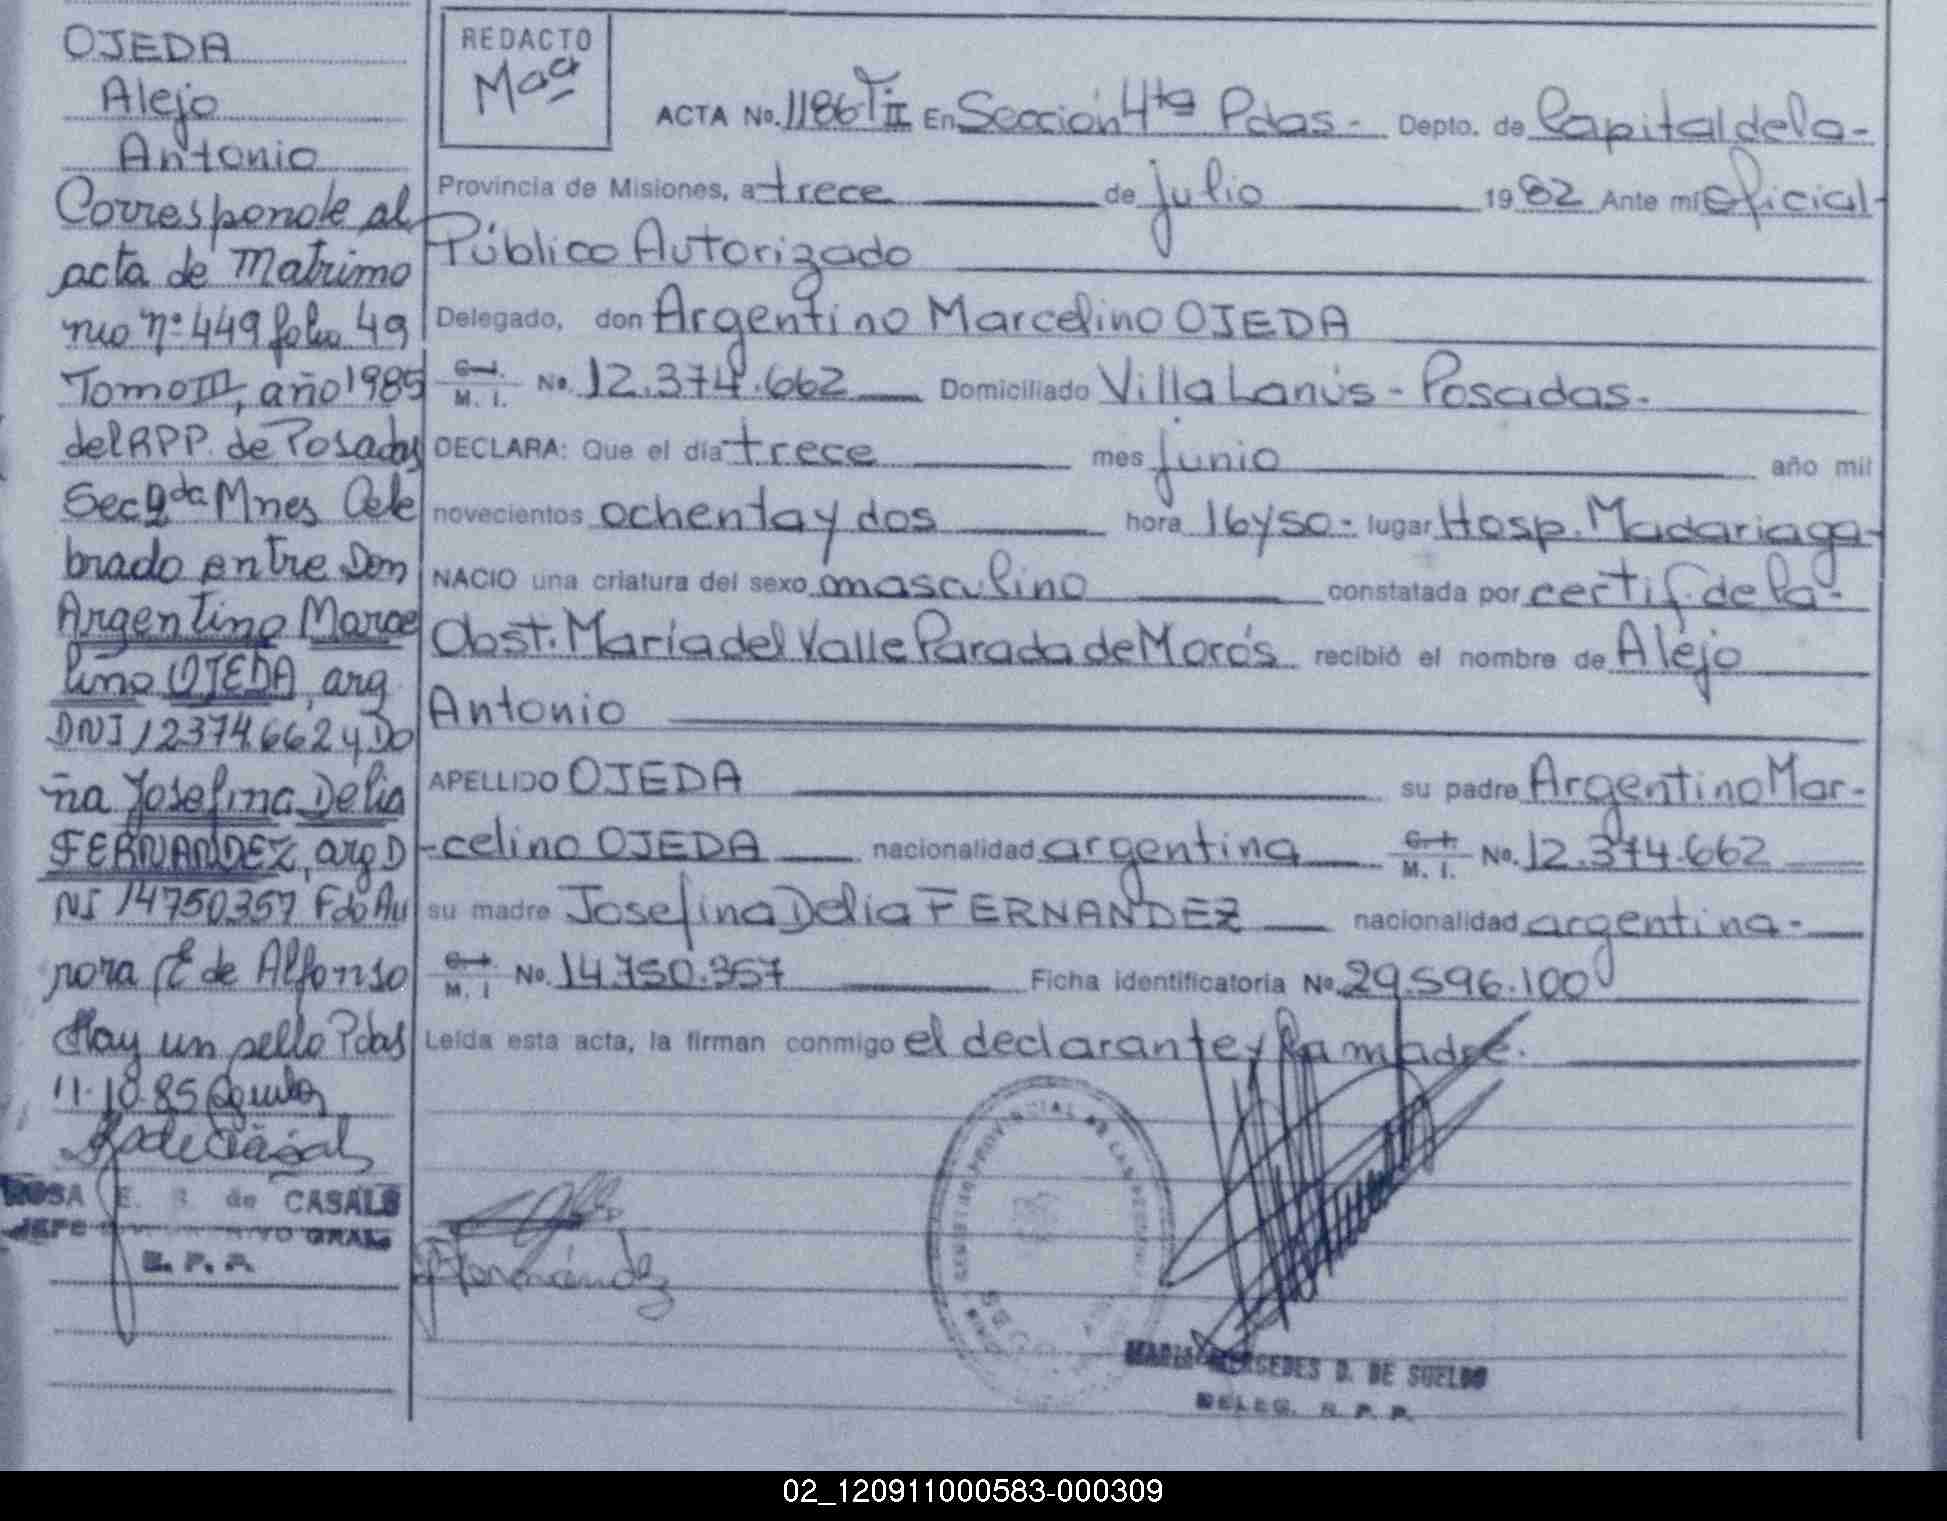 OJEDA
Alejo
Antonio
Corresponde al
acta de Matrimo
nio nº 449 folio 49
Tomo III, año 1985
del RPP. de Posadas
Sec 2da Mnes Cele
brado entre Don
Argentino Marce
lino OJEDA, arg
DNI 12374.662 y Do
ña Josefina Delia
FERNANDEZ, arg D
NI 14750357 Fdo Au
rora E de Alfonso
Hay un sello Pdas
11.10.85
ROSA E. S. de CASALS
JEFE GRAL
R. P. P.
REDACTO
Maa
ACTA No. 1186 T II En Sección 4ta Pdas- Depto. de Capital de la-
Provincia de Misiones, a trece de julio 1982 Ante mí Oficial-
Público Autorizado
Delegado, don Argentino Marcelino OJEDA
C. I. M. I. No. 12.374.662 Domiciliado Villa Lanús - Posadas.
DECLARA: Que el día trece mes junio año mil
novecientos ochenta y dos hora 16 y 50- lugar Hosp. Madariaga-
NACIO una criatura del sexo masculino constatada por certif. de la-
Obst. María del Valle Parada de Morós recibió el nombre de Alejo
Antonio
APELLIDO OJEDA su padre Argentino Mar-
-celino OJEDA nacionalidad argentina C. I. M. I. No. 12.374.662
su madre Josefina Delia FERNANDEZ nacionalidad argentina-
C. I. M. I No. 14.750.357 Ficha identificatoria No. 29.596.100
Leída esta acta, la firman conmigo el declarante y la madre.
Fernández
MARIA MERCEDES D. DE SUELDO
DELEG. R. P. P.
02_120911000583-000309